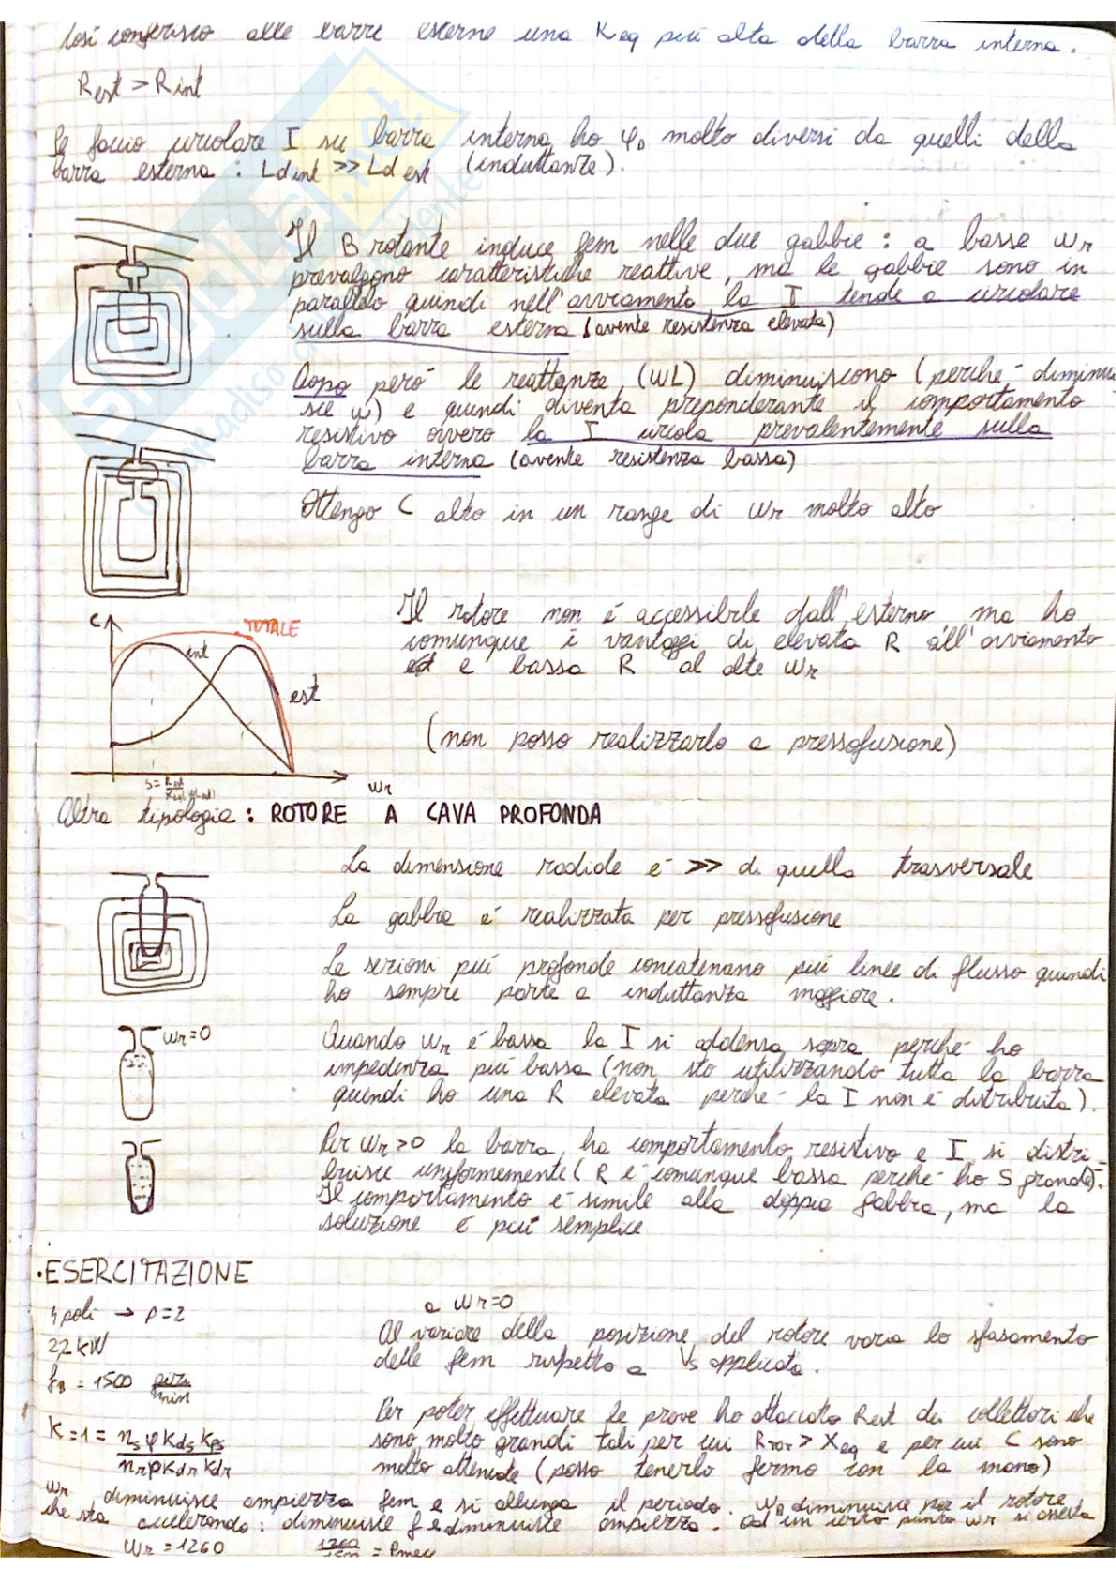 Così conferisco alle barre esterne una Req più alta della barra interna.
Rest > Rint
Se faccio circolare I su barra interna ho φo molto diversi da quelli della
barra esterna : Ld int >> Ld est (induttanze).
Il B rotante induce fem nelle due gabbie : a basse ωr
prevalgono caratteristiche reattive, ma le gabbie sono in
parallelo quindi nell'avviamento la I tende a circolare
sulla barra esterna (avente resistenza elevata)
Dopo però le reattanze (ωL) diminuiscono (perché diminui
sce ω) e quindi diventa preponderante il comportamento
resistivo ovvero la I circola prevalentemente sulla
barra interna (avente resistenza bassa)
Ottengo C alto in un range di ωr molto alto
C
TOTALE
int
est
ωr
Il rotore non è accessibile dall'esterno ma ho
comunque i vantaggi di elevata R all'avviamento
e bassa R al alte ωr
(non posso realizzarlo a pressofusione)
Altra tipologia : ROTORE A CAVA PROFONDA
La dimensione radiale è >> di quella trasversale
La gabbia è realizzata per pressofusione
Le sezioni più profonde concatenano più linee di flusso quindi
ho sempre parte a induttanza maggiore.
ωr=0
Quando ωr è bassa la I si addensa sopra perché ho
impedenza più bassa (non sto utilizzando tutta la barra
quindi ho una R elevata perché la I non è distribuita).
Per ωr>0 la barra ha comportamento resistivo e I si distri-
buisce uniformemente ( R è comunque bassa perché ho S grande).
Il comportamento è simile alla doppia gabbia, ma la
soluzione è più semplice
·ESERCITAZIONE
4 poli → p=2
2,2 kW
= 1500 giri/min
K=1= ns φ kds kps / nr φ kdr kdr
a ωr=0
Al variare della posizione del rotore varia lo sfasamento
delle fem rispetto a Vs applicata.
Per poter effettuare le prove ho attaccato Rest dei collettori che
sono molto grandi tali per cui > Xeq e per cui C sono
molto attenuate (posso tenerlo fermo con la mano)
ωr diminuisce ampiezza fem e si allunga il periodo. diminuisce il rotore
che sta accelerando : diminuisce f e diminuisce ampiezza. ad un certo punto ωr si
ωr = 1260